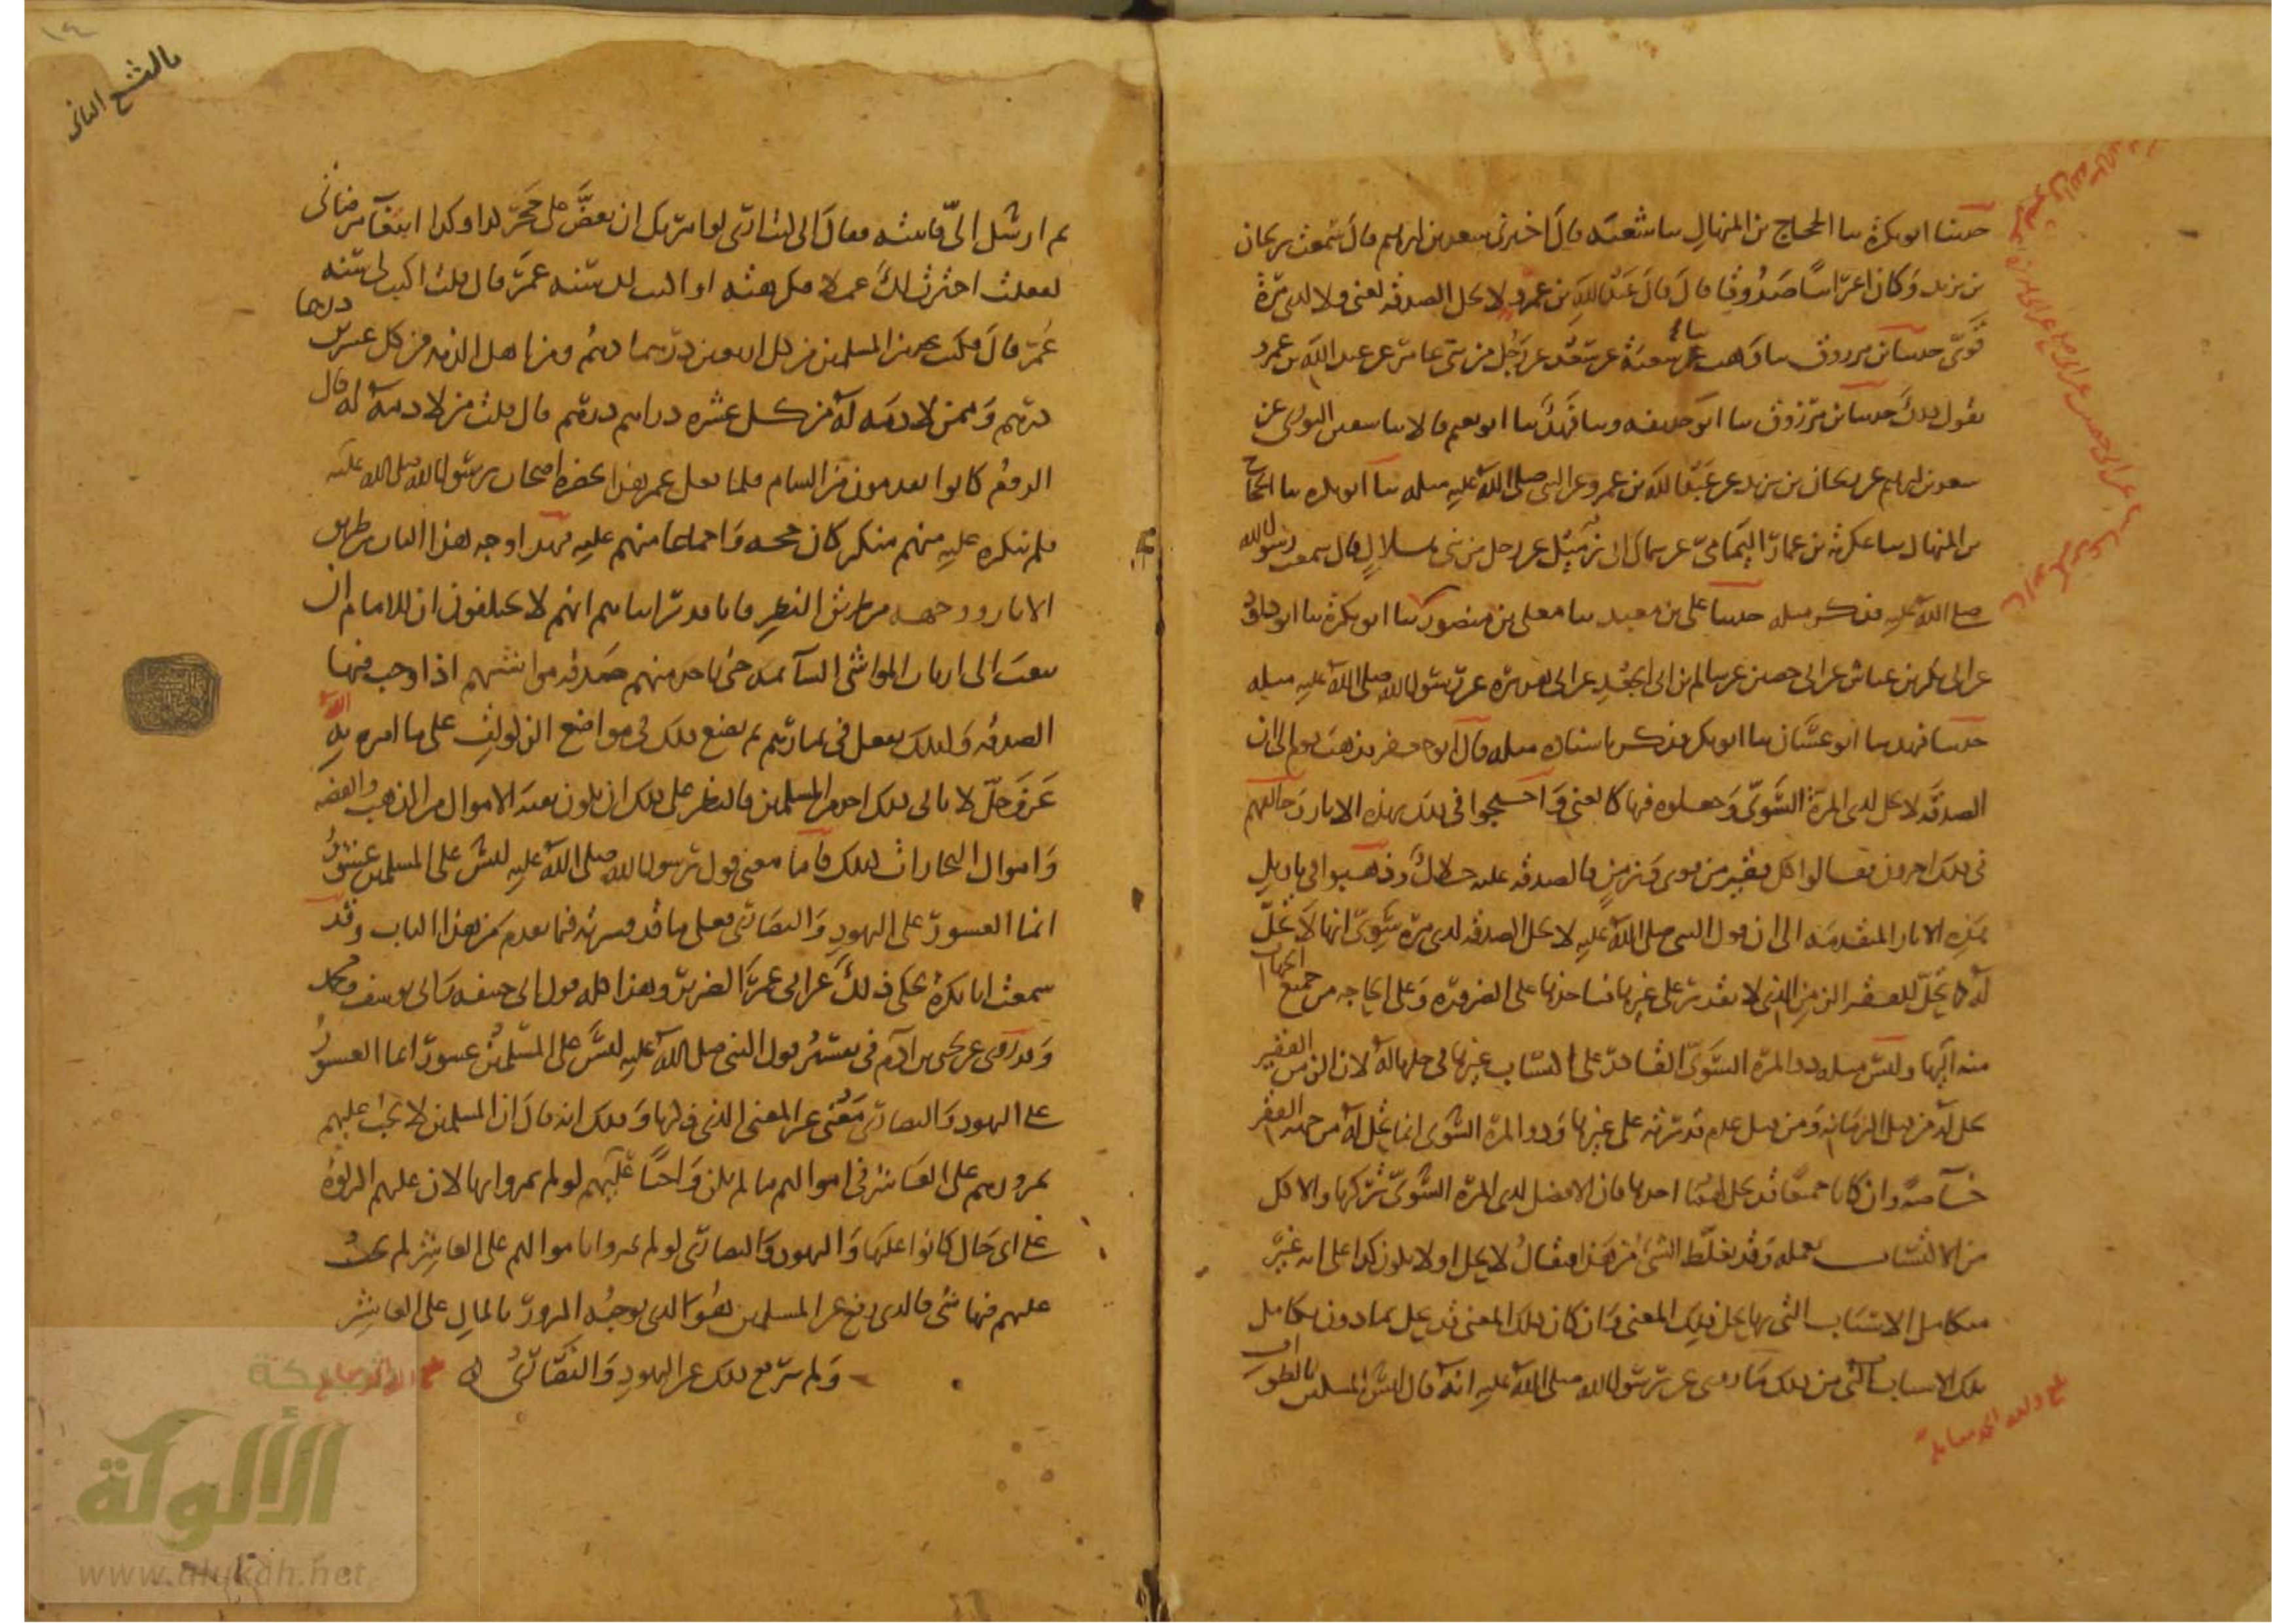 حدثنا ابو بكرة ثنا الحجاج بن المنهال ثنا شعبة قال اخبرني سعد بن ابراهيم قال سمعت ريحان
بن يزيد وكان اعرابيا صدوقا قال قال عبد الله بن عمرو لا تحل الصدقة لغني ولا لذي مرة
قوي حدثنا ابن مرزوق ثنا وهب ثنا شعبة عن سعد عن رجل من بني عامر عن عبد الله بن عمرو
يقول ذلك حدثنا ابن مرزوق ثنا ابو حذيفة وثنا فهد ثنا ابو نعيم قالا ثنا سفين الثوري عن
سعد بن ابراهيم عن ريحان بن يزيد عن عبد الله بن عمرو عن النبي صلى الله عليه مثله ثنا ابو بكره ثنا الحجاج
بن المنهال ثنا عكرمة بن عمار اليمامي عن سماك ابي زميل عن رجل من بني هلال قال سمعت رسول الله
صلى الله عليه فذكر مثله حدثنا علي بن معبد ثنا معلى بن منصور ثنا ابو بكرة ثنا ابو داود
عن ابي بكر بن عياش عن ابي حصين عن سالم بن ابي الجعد عن ابي هريرة عن رسول الله صلى الله عليه مثله
حدثنا فهد ثنا ابو غسان ثنا ابو بكر فذكر باسناده مثله قال ابو جعفر فذهب قوم الى ان
الصدقة لا تحل لذي المرة السوي وجعلوه فيها كالغني واحتجوا في ذلك بهذه الاثار وخالفهم
في ذلك اخرون فقالوا كل فقير من قوي وزمن فالصدقة عليه حلال وذهبوا في تاويل
هذه الاثار المتقدمة الى ان قول النبي صلى الله عليه لا تحل الصدقة لذي مرة سوي انها لا تحل
له كما تحل للفقير الزمن الذي لا يقدر على غيرها فياخذها على الضرورة وعلى الحاجة من جميع الجهات
منه اليها وليس مثله ذو المرة السوي القادر على اكتساب غيرها في حلها له لان الزمن الفقير
تحل له من قبل الزمانة ومن قبل عدم قدرته على غيرها وذو المرة السوي انما تحل له من جهة الفقر
خاصة وان كانا جميعا قد يحل لهما اخذها فان الافضل لذي المرة السوي تركها والاكل
من الاكتساب بعمله وقد يغلظ الشي من هذا فيقال لا يحل او لا يكون كذا على انه غير
متكامل الاسباب التي بها يحل ذلك المعنى وان كان ذلك المعنى قد يحل بما دون تكامل
تلك الاسباب التي من ذلك ما روي عن رسول الله صلى الله عليه انه قال ليس المسكين بالطواف
بلغ ولله الحمد مقابلة
بالتسع الثاني
ثم ارسل الي فاتيته فقال اني لا ارى لو امرتك ان تعض على حجر كذا وكذا ابتغاء مرضاتي
لفعلت اخترت لك عملا فكرهته او اكتب لك سنة عمر قال قلت اكتب لي سنة
عمر قال فكتب خذ من المسلمين من كل اربعين درهما درهم ومن اهل الذمة من كل عشرين درهما
درهم وممن لا ذمة له من كل عشرة دراهم درهم قال قلت من لا ذمة له قال
الروم كانوا يقدمون من الشام فلما فعل عمر هذا بحضرة اصحاب رسول الله صلى الله عليه
فلم ينكره عليه منهم منكر كان حجة واجماعا منهم عليه فهذا وجه هذا الباب من طريق
الاثار ووجهه من طريق النظر فانا قد راينا هم انهم لا يختلفون ان للامام ان
يبعث الى ارباب المواشي السائمة حتى ياخذ منهم صدقة مواشيهم اذا وجب فيها
الصدقة وكذلك يفعل في ثمارهم ثم يضع ذلك في مواضع الزكوات على ما امره به الله
عز وجل لا يابى ذلك احد من المسلمين فالنظر على ذلك ان يكون بقية الاموال من الذهب والفضة
واموال التجارات كذلك فاما معنى قول رسول الله صلى الله عليه ليس على المسلمين عشور
انما العشور على اليهود والنصارى فعلى ما قد فسرته فيما تقدم من هذا الباب وقد
سمعت ابا بكرة يحكي ذلك عن ابي عمر الضرير وهذا كله قول ابي حنيفة وابي يوسف ومحمد
وقد روي عن يحيى بن ادم في تفسير قول النبي صلى الله عليه ليس على المسلمين عشور انما العشور
على اليهود والنصارى معنى غير المعنى الذي ذكرنا وذلك انه قال ان المسلمين لا يجب عليهم
بمرورهم على العاشر في اموالهم ما لم يكن واجبا عليهم لو لم يمروا بها لان عليهم الزكوة
على اي حال كانوا عليها واليهود والنصارى لو لم يمروا باموالهم على العاشر لم يجب
عليهم فيها شي فالذي رفع عن المسلمين هو الذي يوجبه المرور بالمال على العاشر
ولم يرفع ذلك عن اليهود والنصارى
شبكة
الألوكة
www.alukah.net